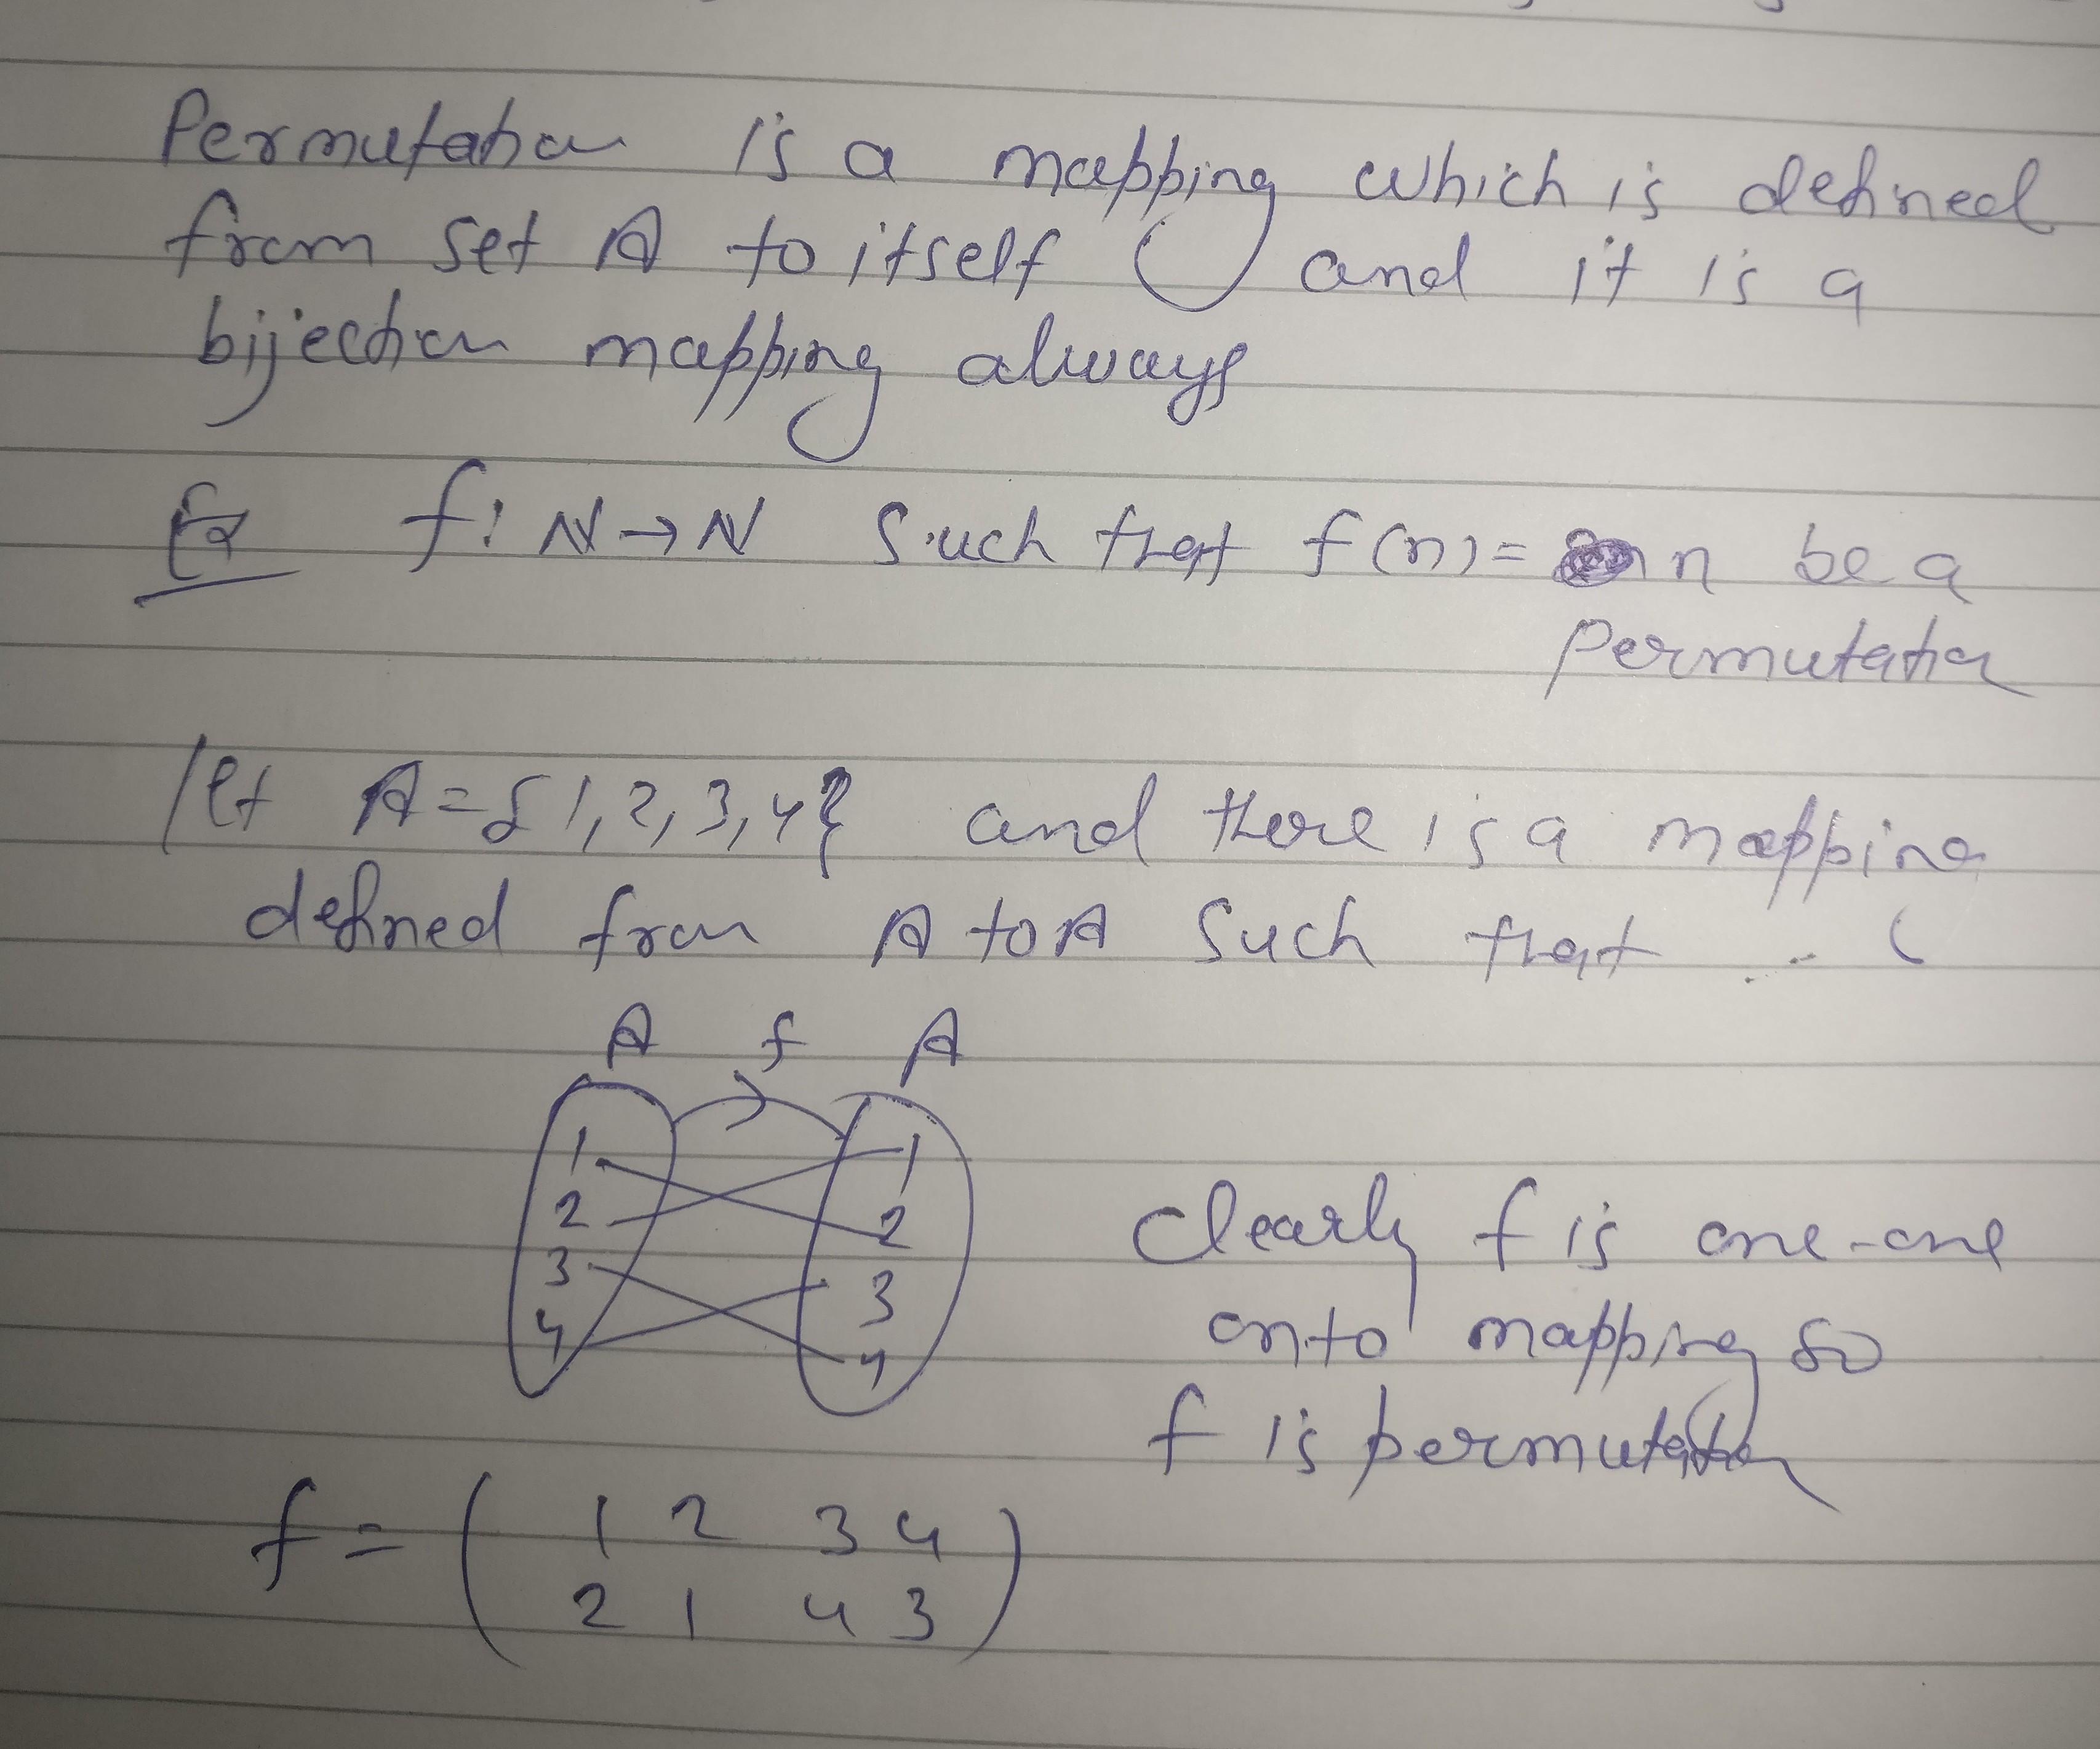 Permutation is a mapping which is defined
from set A to itself and it is a
bijection mapping always
Ex f: N→N Such that f(n)= n be a
permutation
let A={1,2,3,4} and there is a mapping
defined from A to A Such that
A f A
1 1
2 2
3 3
4 4
Clearly f is one-one
onto mapping so
f is permutation
f = ( 1 2 3 4
2 1 4 3 )